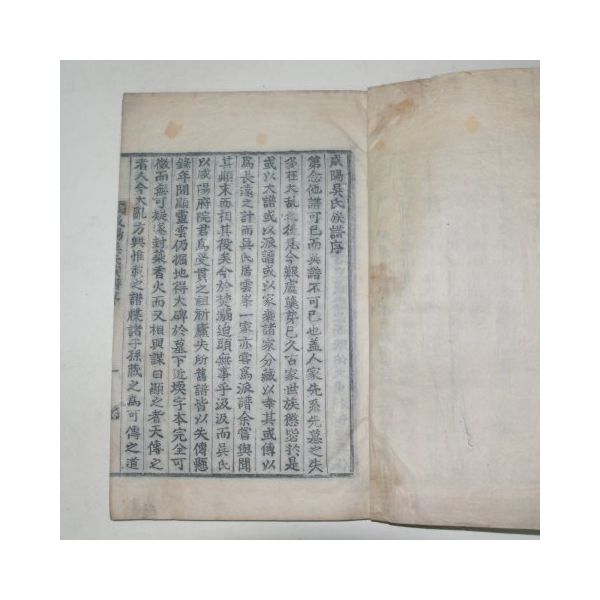 咸陽吳氏族譜序
第念他譜可已而吳譜不可已也盖人家先系先墓之失
多在大亂之後見今艱虞孽芽已久古家世族懲毖於是
或以大譜或以派譜或以家乘諸家分藏以幸其或傳以
爲長遠之計而吳氏居雲峯一家亦當爲派譜余嘗與聞
其顚末而相其役矣今於焚溺迫頭無事乎汲汲而吳氏
以咸陽府院君爲受貫之祖祈廬失所舊譜皆以失傳懸
錄年間顯靈雲仍掘地得大碑於墓下近塽字本完全可
徵而無可疑遂封築香火而又相與謀曰顯之者天傳之
者人今大亂方興惟載之譜牒諸子孫藏之爲可傳之道